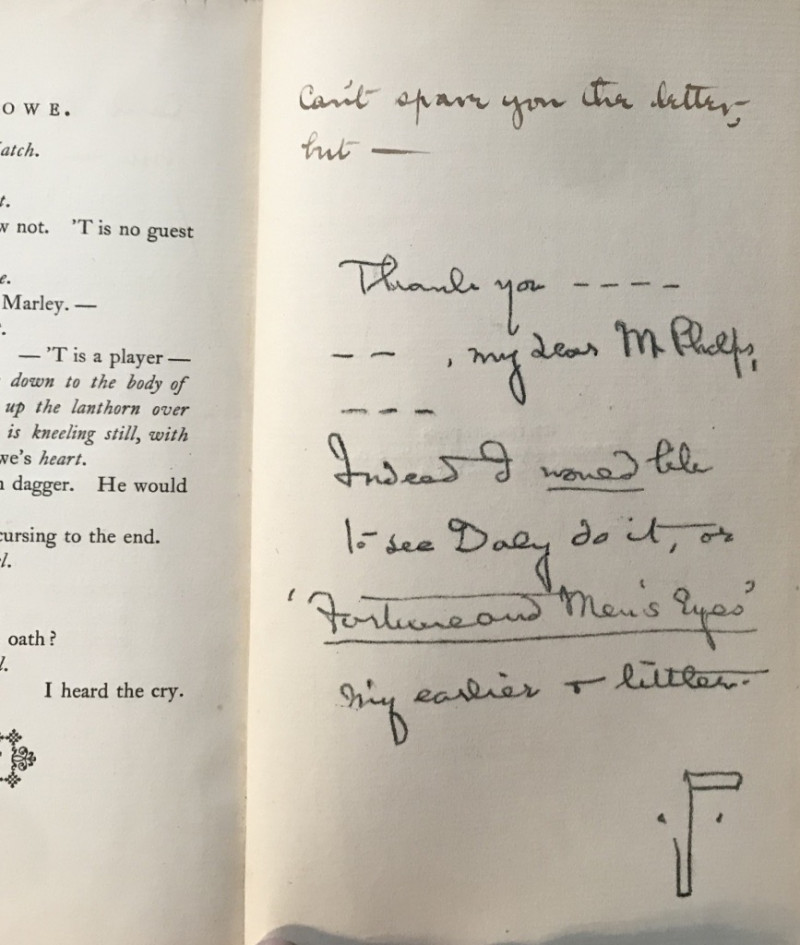 OWE.
atch.
t.
w not. 'T is no guest
e.
Marley. —
— 'T is a player —
down to the body of
up the lanthorn over
is kneeling still, with
we's heart.
dagger. He would
cursing to the end.
l.
oath?
l.
I heard the cry.
Can't spare you the letter,
but —
Thank you - - - -
- - , my dear Mr Phelps,
- - -
Indeed I would like
to see Daly do it, or
'Fortune and Men's Eyes'
my earlier + littler.